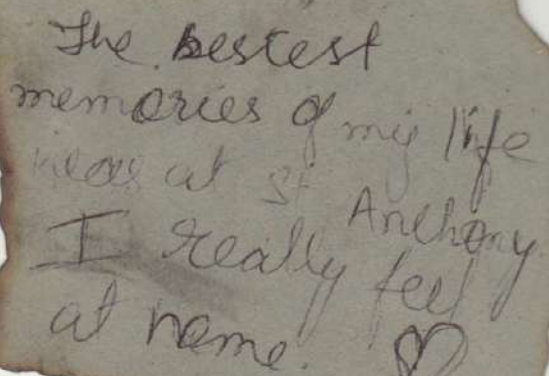 The bestest
memories of my life
was at St Anthony
I really feel
at home.